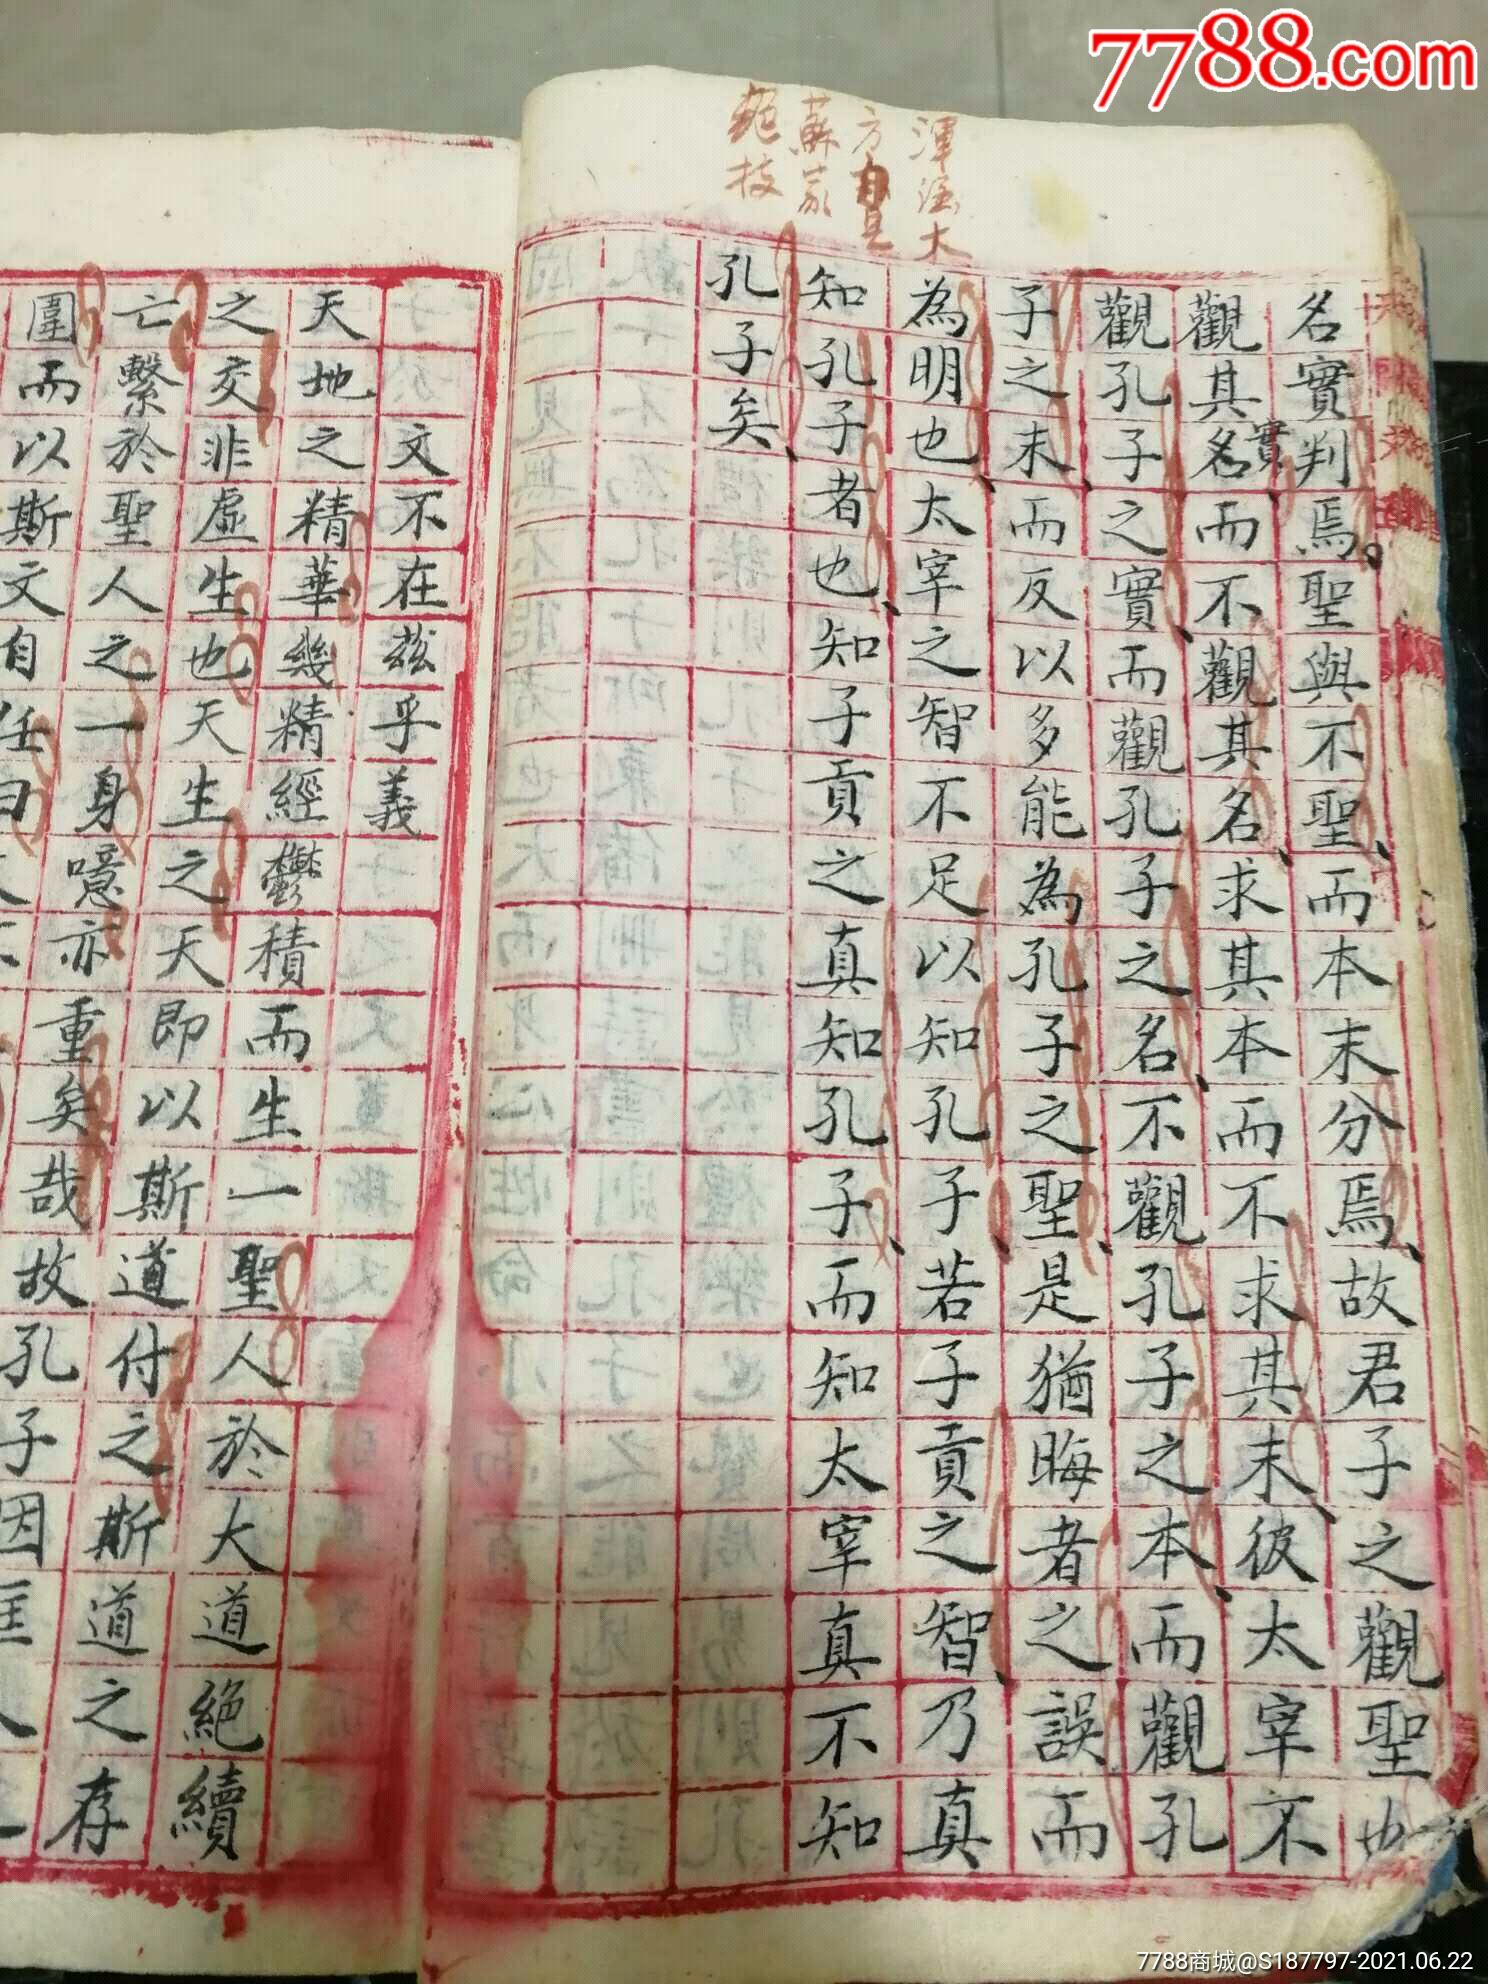 7788.com
渾浩大
方自是
蘇家
絕技
名實判焉聖與不聖而本末分焉故君子之觀聖也
觀其名實而不觀其名求其本而不求其末彼太宰不
觀孔子之實而觀孔子之名不觀孔子之本而觀孔
子之末而反以多能為孔子之聖是猶晦者之誤而
為明也太宰之智不足以知孔子若子貢之智乃真
知孔子者也知子貢之真知孔子而知太宰真不知
孔子矣
文不在茲乎義
天地之精華幾精經鬱積而生一聖人於大道絕續
之交非虛生也天生之天即以斯道付之斯道之存
亡繫於聖人之一身噫亦重矣哉故孔子因匡人
圍而以斯文自任曰
7788商城@S187797-2021.06.22